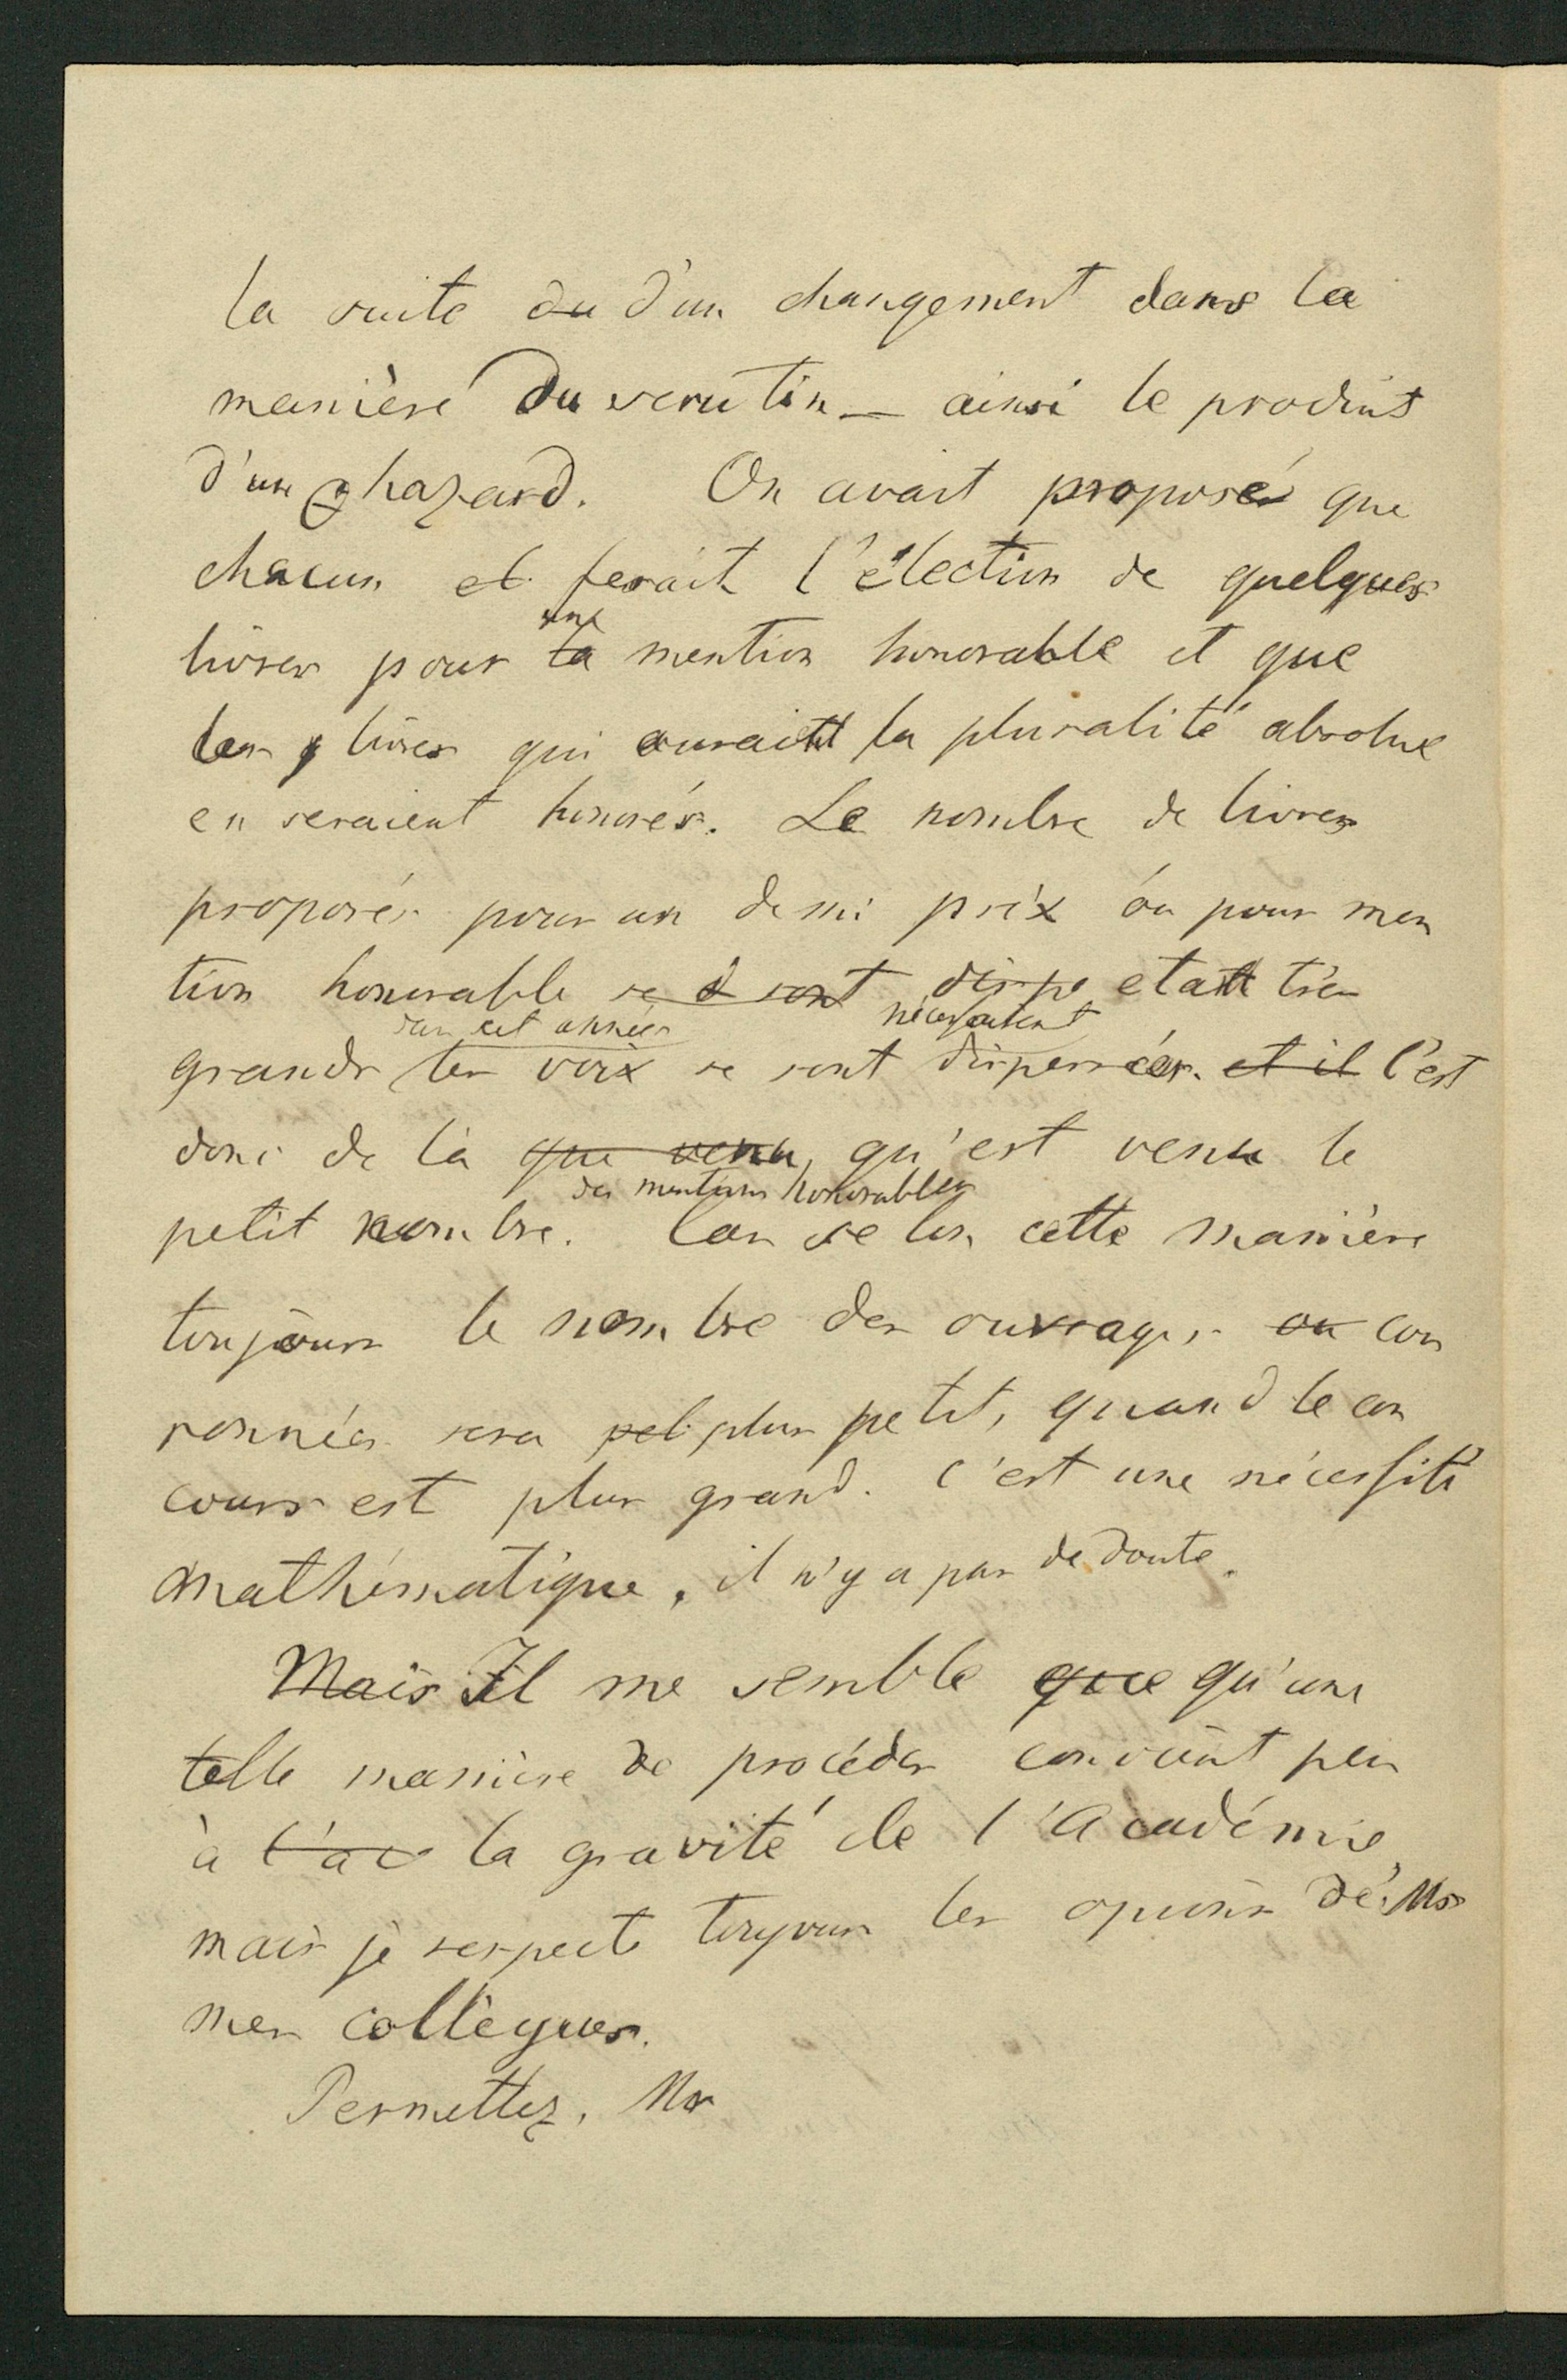 la suite du d'un changement dans la
manière du scrutin — ainsi le produit
d'un hazard. On avait proposé que
chacun et ferait l'élection de quelques
une
livres pour la mention honorable et que
les livres qui auraient la pluralité absolue
en seraient honorés. Le nombre de livres
proposés pour un demi prix ou pour men
tion honorable se sont dispe etait très
cet année nécessairement
grands les voix se sont dispersées. et il C'est
donc de là que venu, qu'est venu le
des mentions honorables
petit nombre. Car selon cette manière
toujours le nombre des ouvrages ou cou
ronnés sera pet plus petit, quand le con
cours est plus grand. C'est une nécessité
mathématique, il n'y a pas de doute.
Mais Il me semble que qu'une
telle manière de procéder convient peu
à l'ac la gravité de l'Académie
mais je respecte toujours les opinions de Mrs
mes collègues.
Permettez, Mr